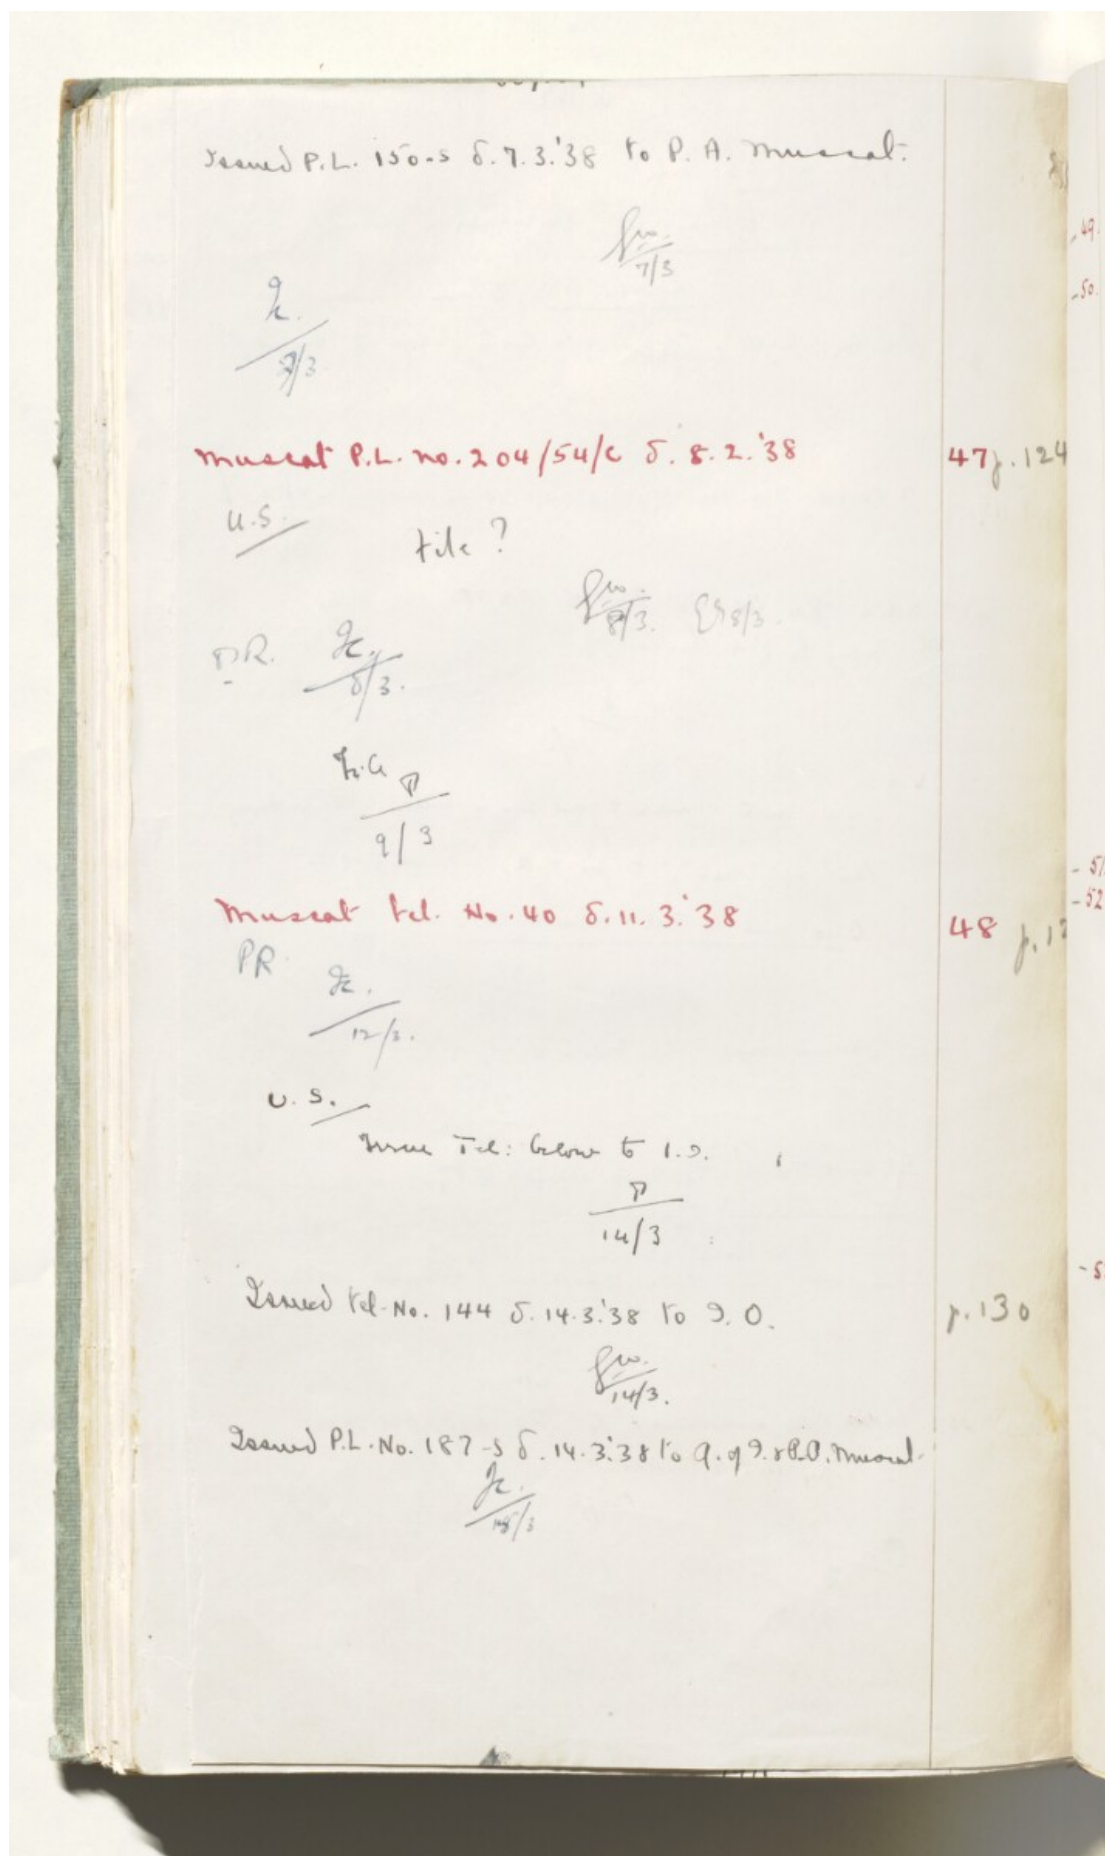 Issued P.L. 150-S d. 7.3.'38 to P. A. Muscat.
7/3
/3
Muscat P.L. no. 204/54/c d. 8.2.'38 47 p. 124
U.S.
File?
8/3. 8/3.
P.R.
8/3.
9/3
Muscat tel. No. 40 d. 11.3.'38 48
PR
12/3.
U.S.
Issue Tel: below to I.O.
14/3
Issued tel. No. 144 d. 14.3.'38 to I.O. p. 130
14/3.
Issued P.L. No. 187-S d. 14.3.'38 to G. of I. & P.A. Muscat.
/3
-49.
-50.
-51
-52